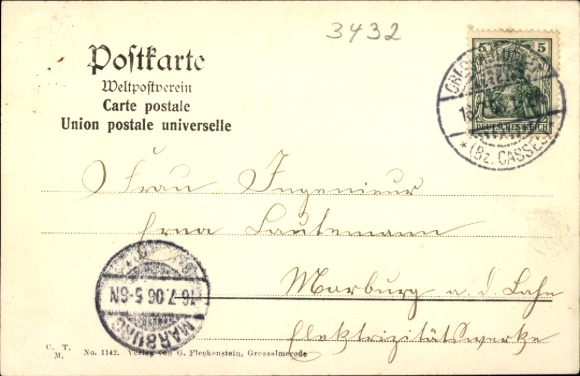 3432
Postkarte
Weltpostverein
Carte postale
Union postale universelle
5 5
DEUTSCHES REICH
* (Bz. CASSEL)
Frau Ingenieur
Erna Lautemann
Marburg a. d. Lahn
Elektrizitätswerke
16.7.06.5-6N
MARBURG
C. T. M. No. 1142. Verlag von G. Fleckenstein, Grossalmerode